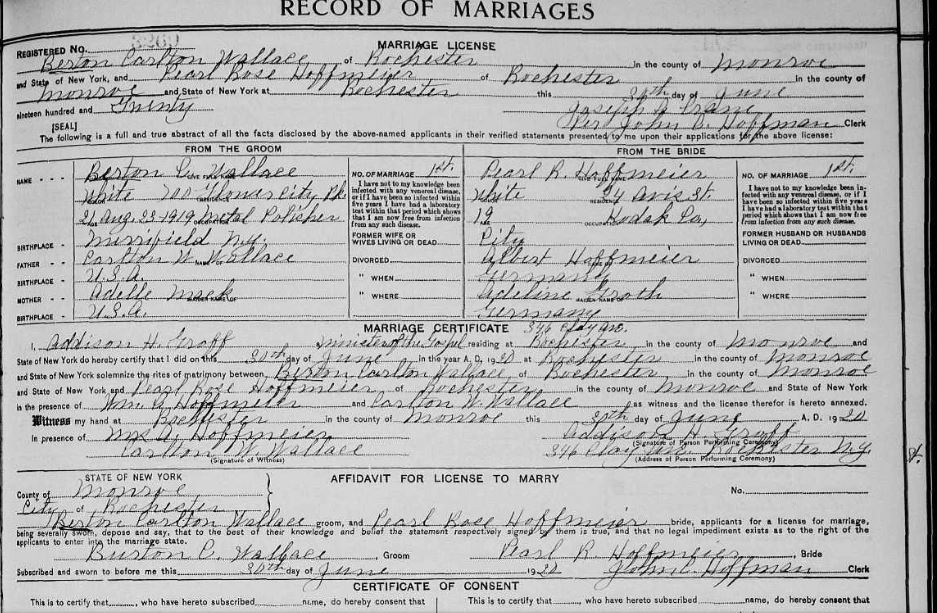 RECORD OF MARRIAGES
MARRIAGE LICENSE
REGISTERED No.
Berton Carlton Wallace of Rochester in the county of Monroe
and State of New York, and Pearl Rose Hoffmeier of Rochester in the county of
Monroe and State of New York at Rochester this 30th day of June
nineteen hundred and Twenty
[SEAL] Per John C. Hoffman Clerk
The following is a full and true abstract of all the facts disclosed by the above-named applicants in their verified statements presented to me upon their applications for the above license:
FROM THE GROOM
NAME Berton C. Wallace
White
21 Aug. 22-1919 Metal Polisher
BIRTHPLACE Merrifield N.Y.
FATHER Carlton W. Wallace
BIRTHPLACE U.S.A.
MOTHER Adelle Mack
BIRTHPLACE U.S.A.
NO. OF MARRIAGE 1st.
I have not to my knowledge been
infected with any venereal disease,
or if I have been so infected
within five years I have had a
laboratory test within that period
which shows that I am now free
from infection from any such disease.
FORMER WIFE OR
WIVES LIVING OR DEAD
DIVORCED
" WHEN
" WHERE
FROM THE BRIDE
Pearl R. Hoffmeier
White 94 Avis St.
19 Kodak Co,
City
Albert Hoffmeier
Germany
Adeline Groth
Germany
NO. OF MARRIAGE 1st.
FORMER HUSBAND OR HUSBANDS
LIVING OR DEAD
DIVORCED
" WHEN
" WHERE
MARRIAGE CERTIFICATE 396 Clay Ave.
I, Addison H. Groff Minister of the Gospel residing at Rochester in the county of Monroe and
State of New York do hereby certify that I did on this 30th day of June in the year A. D. 1920 at Rochester in the county of Monroe
and State of New York solemnize the rites of matrimony between Berton Carlton Wallace of Rochester in the county of Monroe
and State of New York and Pearl Rose Hoffmeier of Rochester in the county of Monroe and State of New York
in the presence of Hoffmeier and Carlton W. Wallace as witness and the license therefor is hereto annexed.
Witness my hand at Rochester in the county of Monroe this 30th day of June A. D. 1920
In presence of Hoffmeier Addison H. Groff
(Signature of Person Performing Ceremony)
Carlton W. Wallace 396 Clay Ave. Rochester N.Y.
(Signature of Witness) (Address of Person Performing Ceremony)
STATE OF NEW YORK AFFIDAVIT FOR LICENSE TO MARRY
County of Monroe No.
City of Rochester
Berton Carlton Wallace groom, and Pearl Rose Hoffmeier bride, applicants for a license for marriage,
being severally sworn, depose and say, that to the best of their knowledge and belief the statement respectively signed by them is true, and that no legal impediment exists as to the right of the
applicants to enter into the marriage state.
Burton C. Wallace Groom Pearl R. Hoffmeier, Bride
Subscribed and sworn to before me this 30th day of June 1920 John C. Hoffman Clerk
CERTIFICATE OF CONSENT
This is to certify that, who have hereto subscribed name, do hereby consent that This is to certify that, who have hereto subscribed name, do hereby consent that